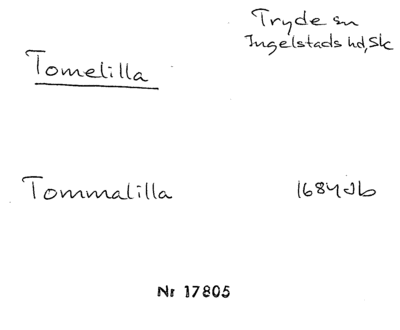 Tryde sn
Ingelstads hd, Sk
Tomelilla
Tommalilla 1684 Jb
Nr 17805